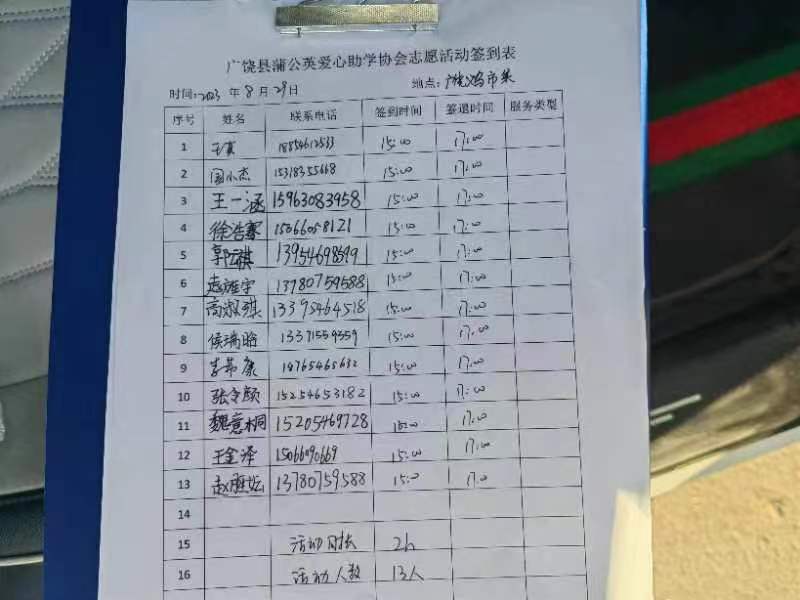 广饶县蒲公英爱心助学协会志愿活动签到表
时间:2023 年 8 月 29日 地点:广饶鸿市集
序号 姓名 联系电话 签到时间 签退时间 服务类型
1 王真 18854612533 15:00 17:00
2 国小杰 15318355668 15:00 17:00
3 王一涵 15963083958 15:00 17:00
4 徐浩 15066058121 15:00 17:00
5 郭云祺 13954698599 15:00 17:00
6 赵雅宇 13780759588 15:00 17:00
7 高淑琪 13395464518 15:00 17:00
8 侯瑞晗 13371559359 15:00 17:00
9 康 18765465632 15:00 17:00
10 张令颜 15254653182 15:00 17:00
11 魏意桐 15205469728 15:00 17:00
12 王金泽 15066090669 15:00 17:00
13 赵雅坛 13780759588 15:00 17:00
14
15 活动时长 2h
16 活动人数 13人